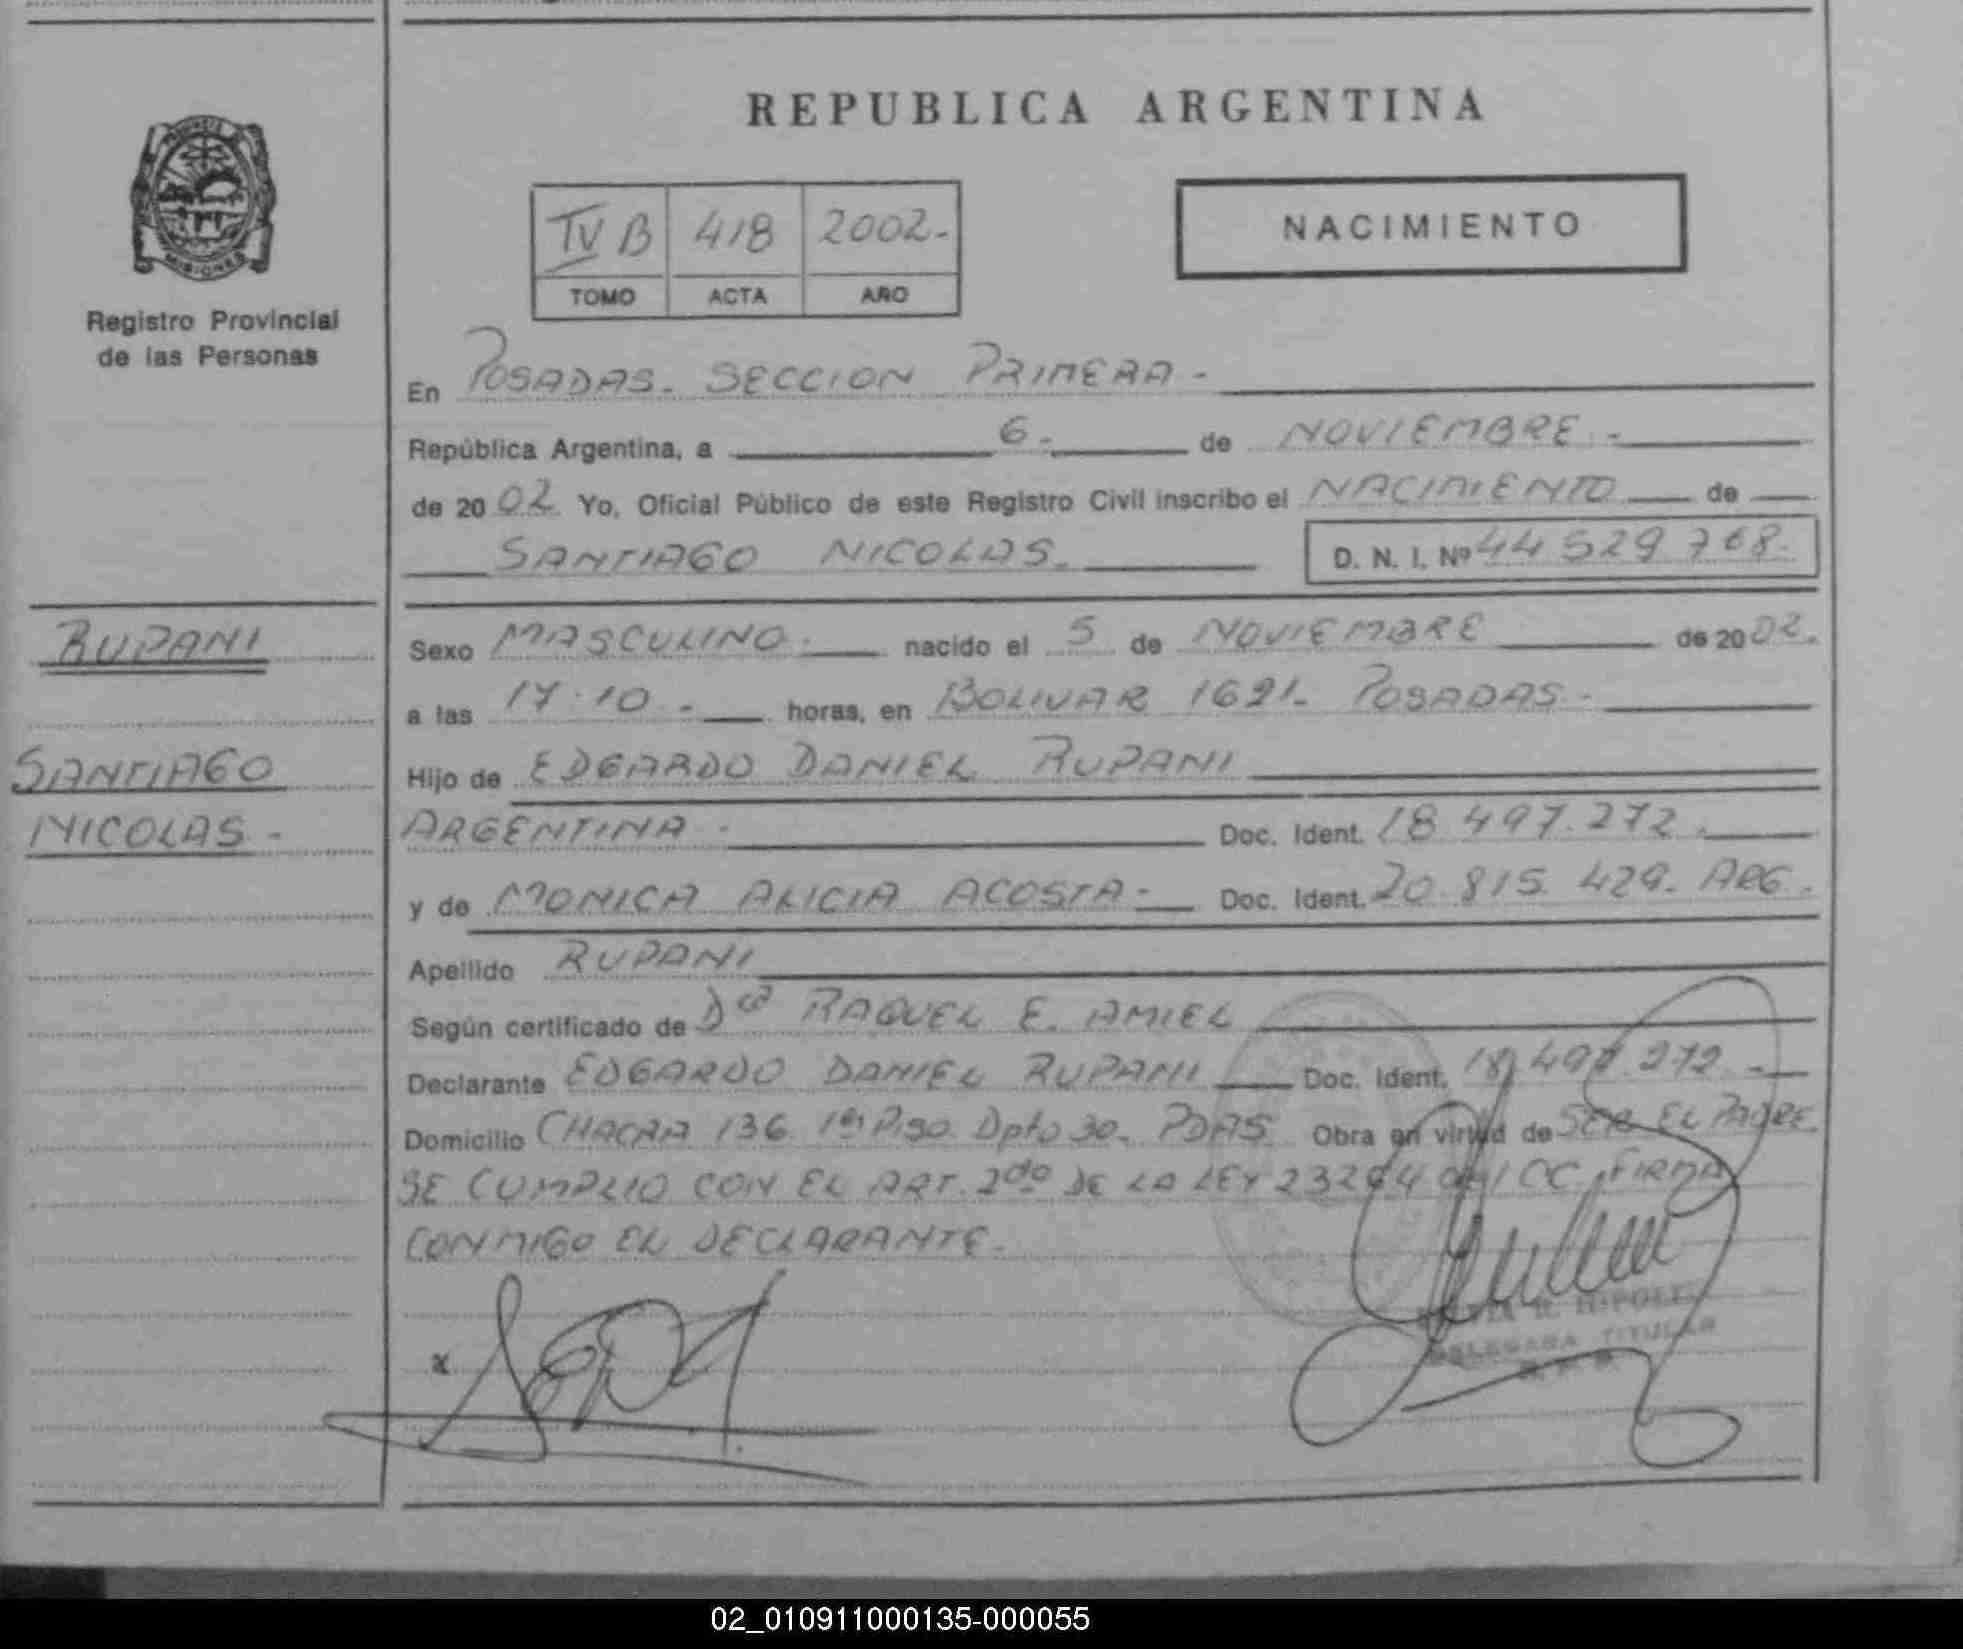 REPUBLICA ARGENTINA
MISIONES
Registro Provincial
de las Personas
IV B 418 2002-
TOMO ACTA AÑO
NACIMIENTO
En POSADAS. SECCION PRIMERA -
República Argentina, a 6- de NOVIEMBRE. -
de 2002 Yo, Oficial Público de este Registro Civil inscribo el NACIMIENTO de
SANTIAGO NICOLAS. D. N. I. Nº 44 529 768-
RUPANI
SANTIAGO
NICOLAS -
Sexo MASCULINO. nacido el 5 de NOVIEMBRE de 2002.
a las 17.10 - horas, en BOLIVAR 1621- POSADAS -
Hijo de EDGARDO DANIEL RUPANI
ARGENTINA - Doc. Ident. 18 497.272.
y de MONICA ALICIA ACOSTA- Doc. Ident. 20.815.429. ARG.
Apellido RUPANI
Según certificado de Dra RAQUEL E. AMIEL
Declarante EDGARDO DANIEL RUPANI Doc. Ident. 18 497 272 -
Domicilio CHACRA 136 1er Piso Dpto 30. PDAS Obra en virtud de SER EL PADRE.
SE CUMPLIO CON EL ART. 2do DE LA LEY 23264 del CC. FIRMA
CONMIGO EL DECLARANTE.
x
R. HIPOLI
DELEGADA TITULAR
02_010911000135-000055